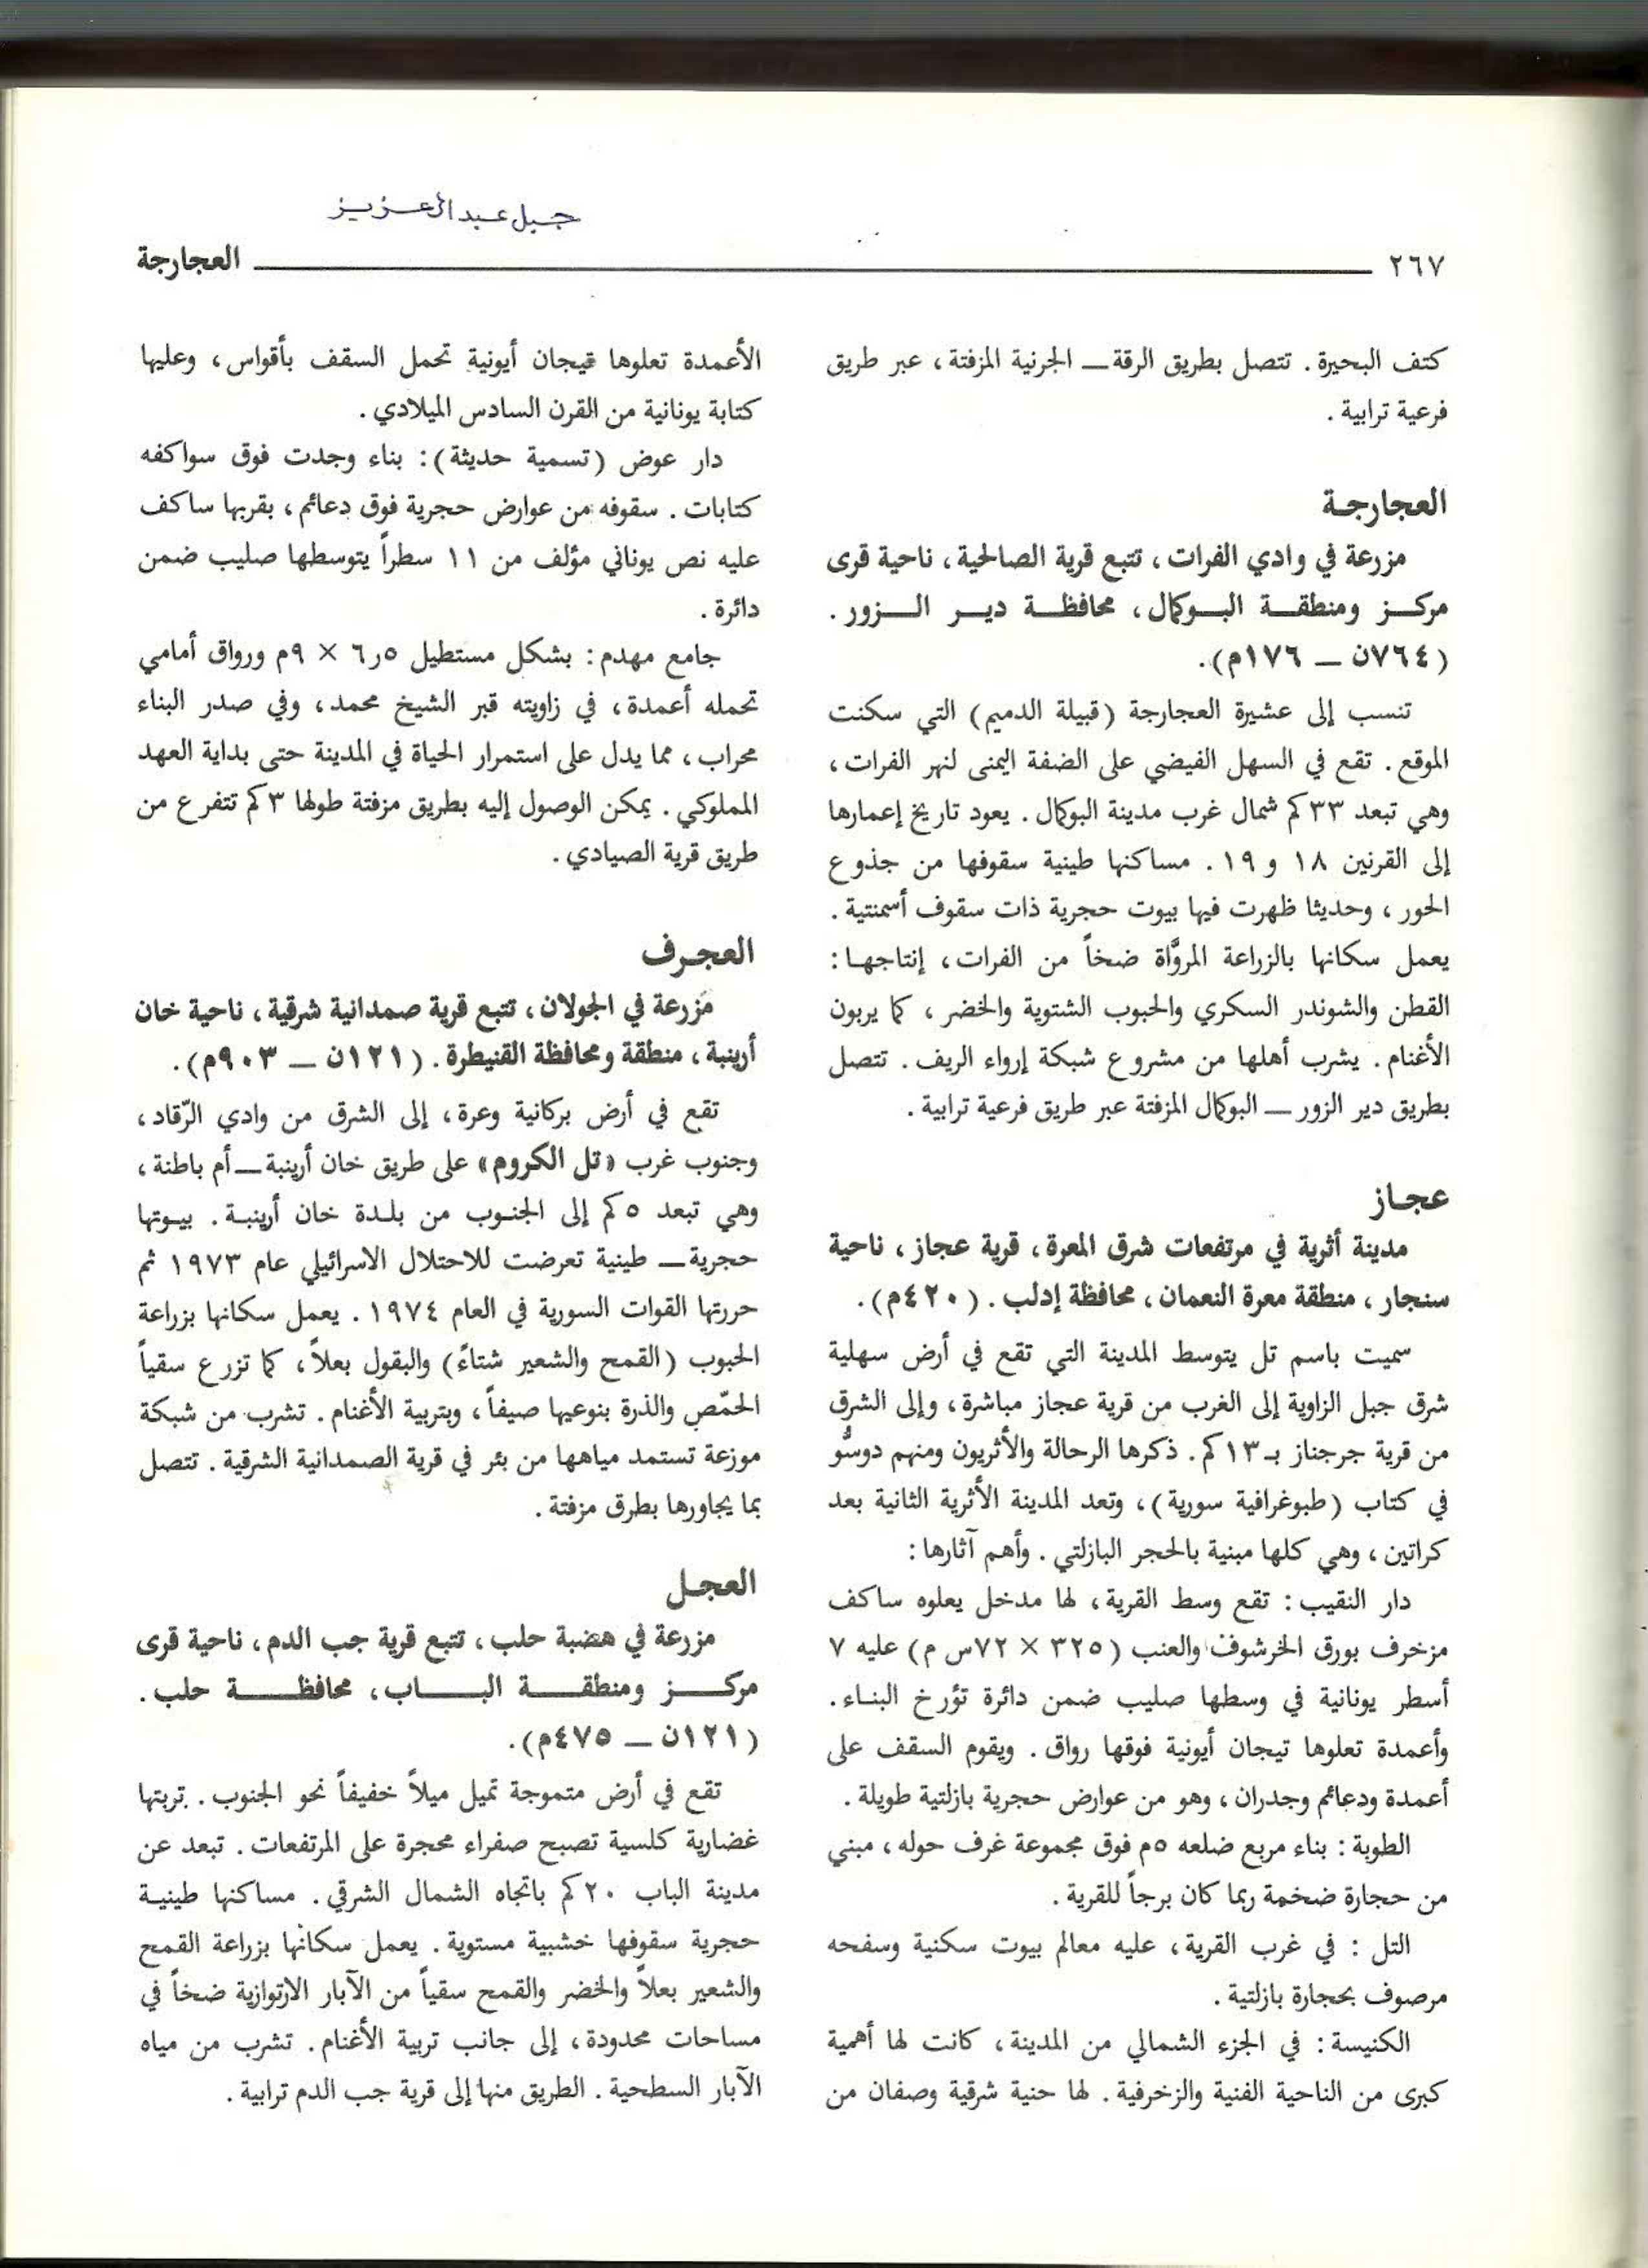 جبل عبد العزيز
٢٦٧ العجارجة
كتف البحيرة . تتصل بطريق الرقة ــ الجرنية المزفتة ، عبر طريق
فرعية ترابية .
العجارجة
مزرعة في وادي الفرات ، تتبع قرية الصالحية ، ناحية قرى
مركز ومنطقة البوكمال ، محافظة دير الزور .
(٧٦٤ن ــ ١٧٦م) .
تنسب إلى عشيرة العجارجة (قبيلة الدميم) التي سكنت
الموقع . تقع في السهل الفيضي على الضفة اليمنى لنهر الفرات ،
وهي تبعد ٣٣كم شمال غرب مدينة البوكمال . يعود تاريخ إعمارها
إلى القرنين ١٨ و ١٩ . مساكنها طينية سقوفها من جذوع
الحور ، وحديثا ظهرت فيها بيوت حجرية ذات سقوف أسمنتية .
يعمل سكانها بالزراعة المروَّاة ضخاً من الفرات ، إنتاجها :
القطن والشوندر السكري والحبوب الشتوية والخضر ، كما يربون
الأغنام . يشرب أهلها من مشروع شبكة إرواء الريف . تتصل
بطريق دير الزور ــ البوكمال المزفتة عبر طريق فرعية ترابية .
عجاز
مدينة أثرية في مرتفعات شرق المعرة ، قرية عجاز ، ناحية
سنجار ، منطقة معرة النعمان ، محافظة إدلب . (٤٢٠م) .
سميت باسم تل يتوسط المدينة التي تقع في أرض سهلية
شرق جبل الزاوية إلى الغرب من قرية عجاز مباشرة ، وإلى الشرق
من قرية جرجناز بـ ١٣كم . ذكرها الرحالة والأثريون ومنهم دوسُّو
في كتاب (طبوغرافية سورية) ، وتعد المدينة الأثرية الثانية بعد
كراتين ، وهي كلها مبنية بالحجر البازلتي . وأهم آثارها :
دار النقيب : تقع وسط القرية ، لها مدخل يعلوه ساكف
مزخرف بورق الخرشوف والعنب (٣٢٥ × ٧٢س م) عليه ٧
أسطر يونانية في وسطها صليب ضمن دائرة تؤرخ البناء .
وأعمدة تعلوها تيجان أيونية فوقها رواق . ويقوم السقف على
أعمدة ودعائم وجدران ، وهو من عوارض حجرية بازلتية طويلة .
الطوبة : بناء مربع ضلعه ٥م فوق مجموعة غرف حوله ، مبني
من حجارة ضخمة ربما كان برجاً للقرية .
التل : في غرب القرية ، عليه معالم بيوت سكنية وسفحه
مرصوف بحجارة بازلتية .
الكنيسة : في الجزء الشمالي من المدينة ، كانت لها أهمية
كبرى من الناحية الفنية والزخرفية . لها حنية شرقية وصفان من
الأعمدة تعلوها تيجان أيونية تحمل السقف بأقواس ، وعليها
كتابة يونانية من القرن السادس الميلادي .
دار عوض (تسمية حديثة) : بناء وجدت فوق سواكفه
كتابات . سقوفه من عوارض حجرية فوق دعائم ، بقربها ساكف
عليه نص يوناني مؤلف من ١١ سطراً يتوسطها صليب ضمن
دائرة .
جامع مهدم : بشكل مستطيل ٦٫٥ × ٩م ورواق أمامي
تحمله أعمدة ، في زاويته قبر الشيخ محمد ، وفي صدر البناء
محراب ، مما يدل على استمرار الحياة في المدينة حتى بداية العهد
المملوكي . يمكن الوصول إليه بطريق مزفتة طولها ٣كم تتفرع من
طريق قرية الصيادي .
العجرف
مزرعة في الجولان ، تتبع قرية صمدانية شرقية ، ناحية خان
أرينبة ، منطقة ومحافظة القنيطرة . (١٢١ن ــ ٩٠٣م) .
تقع في أرض بركانية وعرة ، إلى الشرق من وادي الرّقاد ،
وجنوب غرب «تل الكروم» على طريق خان أرينبة ــ أم باطنة ،
وهي تبعد ٥كم إلى الجنوب من بلدة خان أرينبة . بيوتها
حجرية ــ طينية تعرضت للاحتلال الاسرائيلي عام ١٩٧٣ ثم
حررتها القوات السورية في العام ١٩٧٤ . يعمل سكانها بزراعة
الحبوب (القمح والشعير شتاءً) والبقول بعلاً ، كما تزرع سقياً
الحمّص والذرة بنوعيها صيفاً ، وبتربية الأغنام . تشرب من شبكة
موزعة تستمد مياهها من بئر في قرية الصمدانية الشرقية . تتصل
بما يجاورها بطرق مزفتة .
العجل
مزرعة في هضبة حلب ، تتبع قرية جب الدم ، ناحية قرى
مركز ومنطقة الباب ، محافظة حلب .
(١٢١ن ــ ٤٧٥م) .
تقع في أرض متموجة تميل ميلاً خفيفاً نحو الجنوب . تربتها
غضارية كلسية تصبح صفراء محجرة على المرتفعات . تبعد عن
مدينة الباب ٢٠كم باتجاه الشمال الشرقي . مساكنها طينية
حجرية سقوفها خشبية مستوية . يعمل سكانها بزراعة القمح
والشعير بعلاً والخضر والقمح سقياً من الآبار الارتوازية ضخاً في
مساحات محدودة ، إلى جانب تربية الأغنام . تشرب من مياه
الآبار السطحية . الطريق منها إلى قرية جب الدم ترابية .